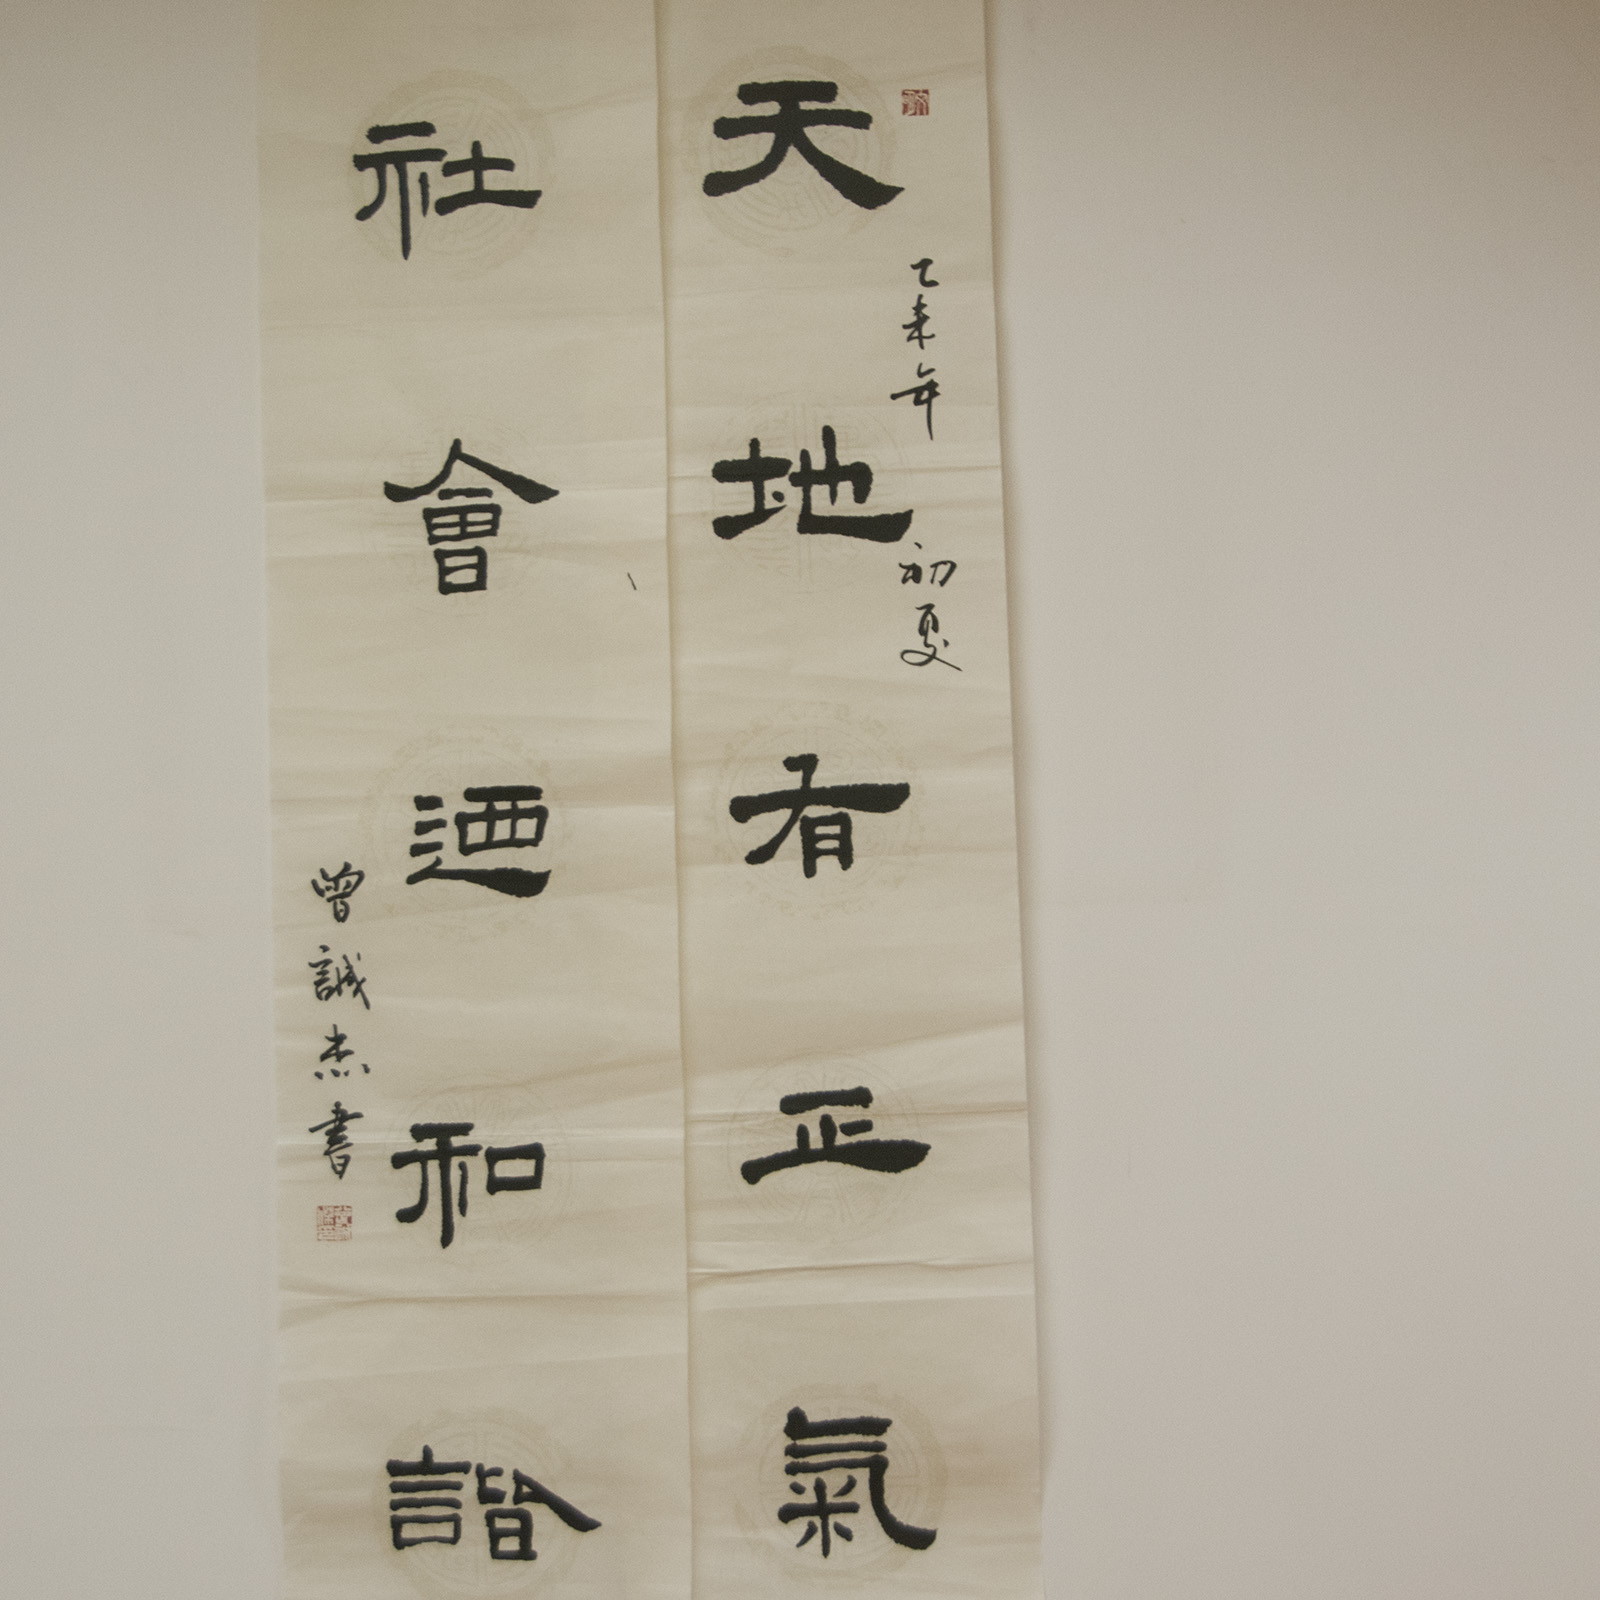 天地有正氣
乙未年初夏
社會迺和諧
曾誠杰書